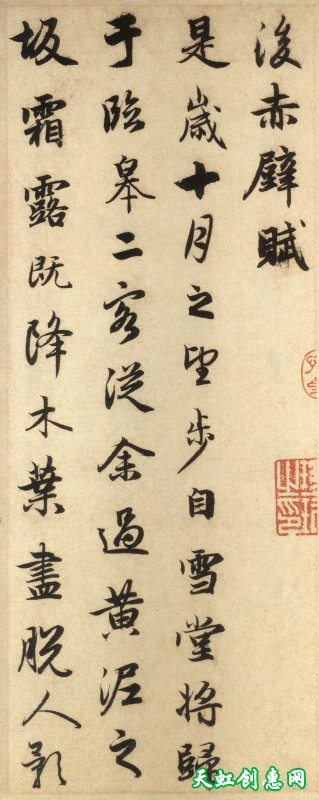 後赤壁賦
是歲十月之望步自雪堂將歸
于臨皋二客從余過黄泥之
坂霜露既降木葉盡脱人影
天虹创惠网